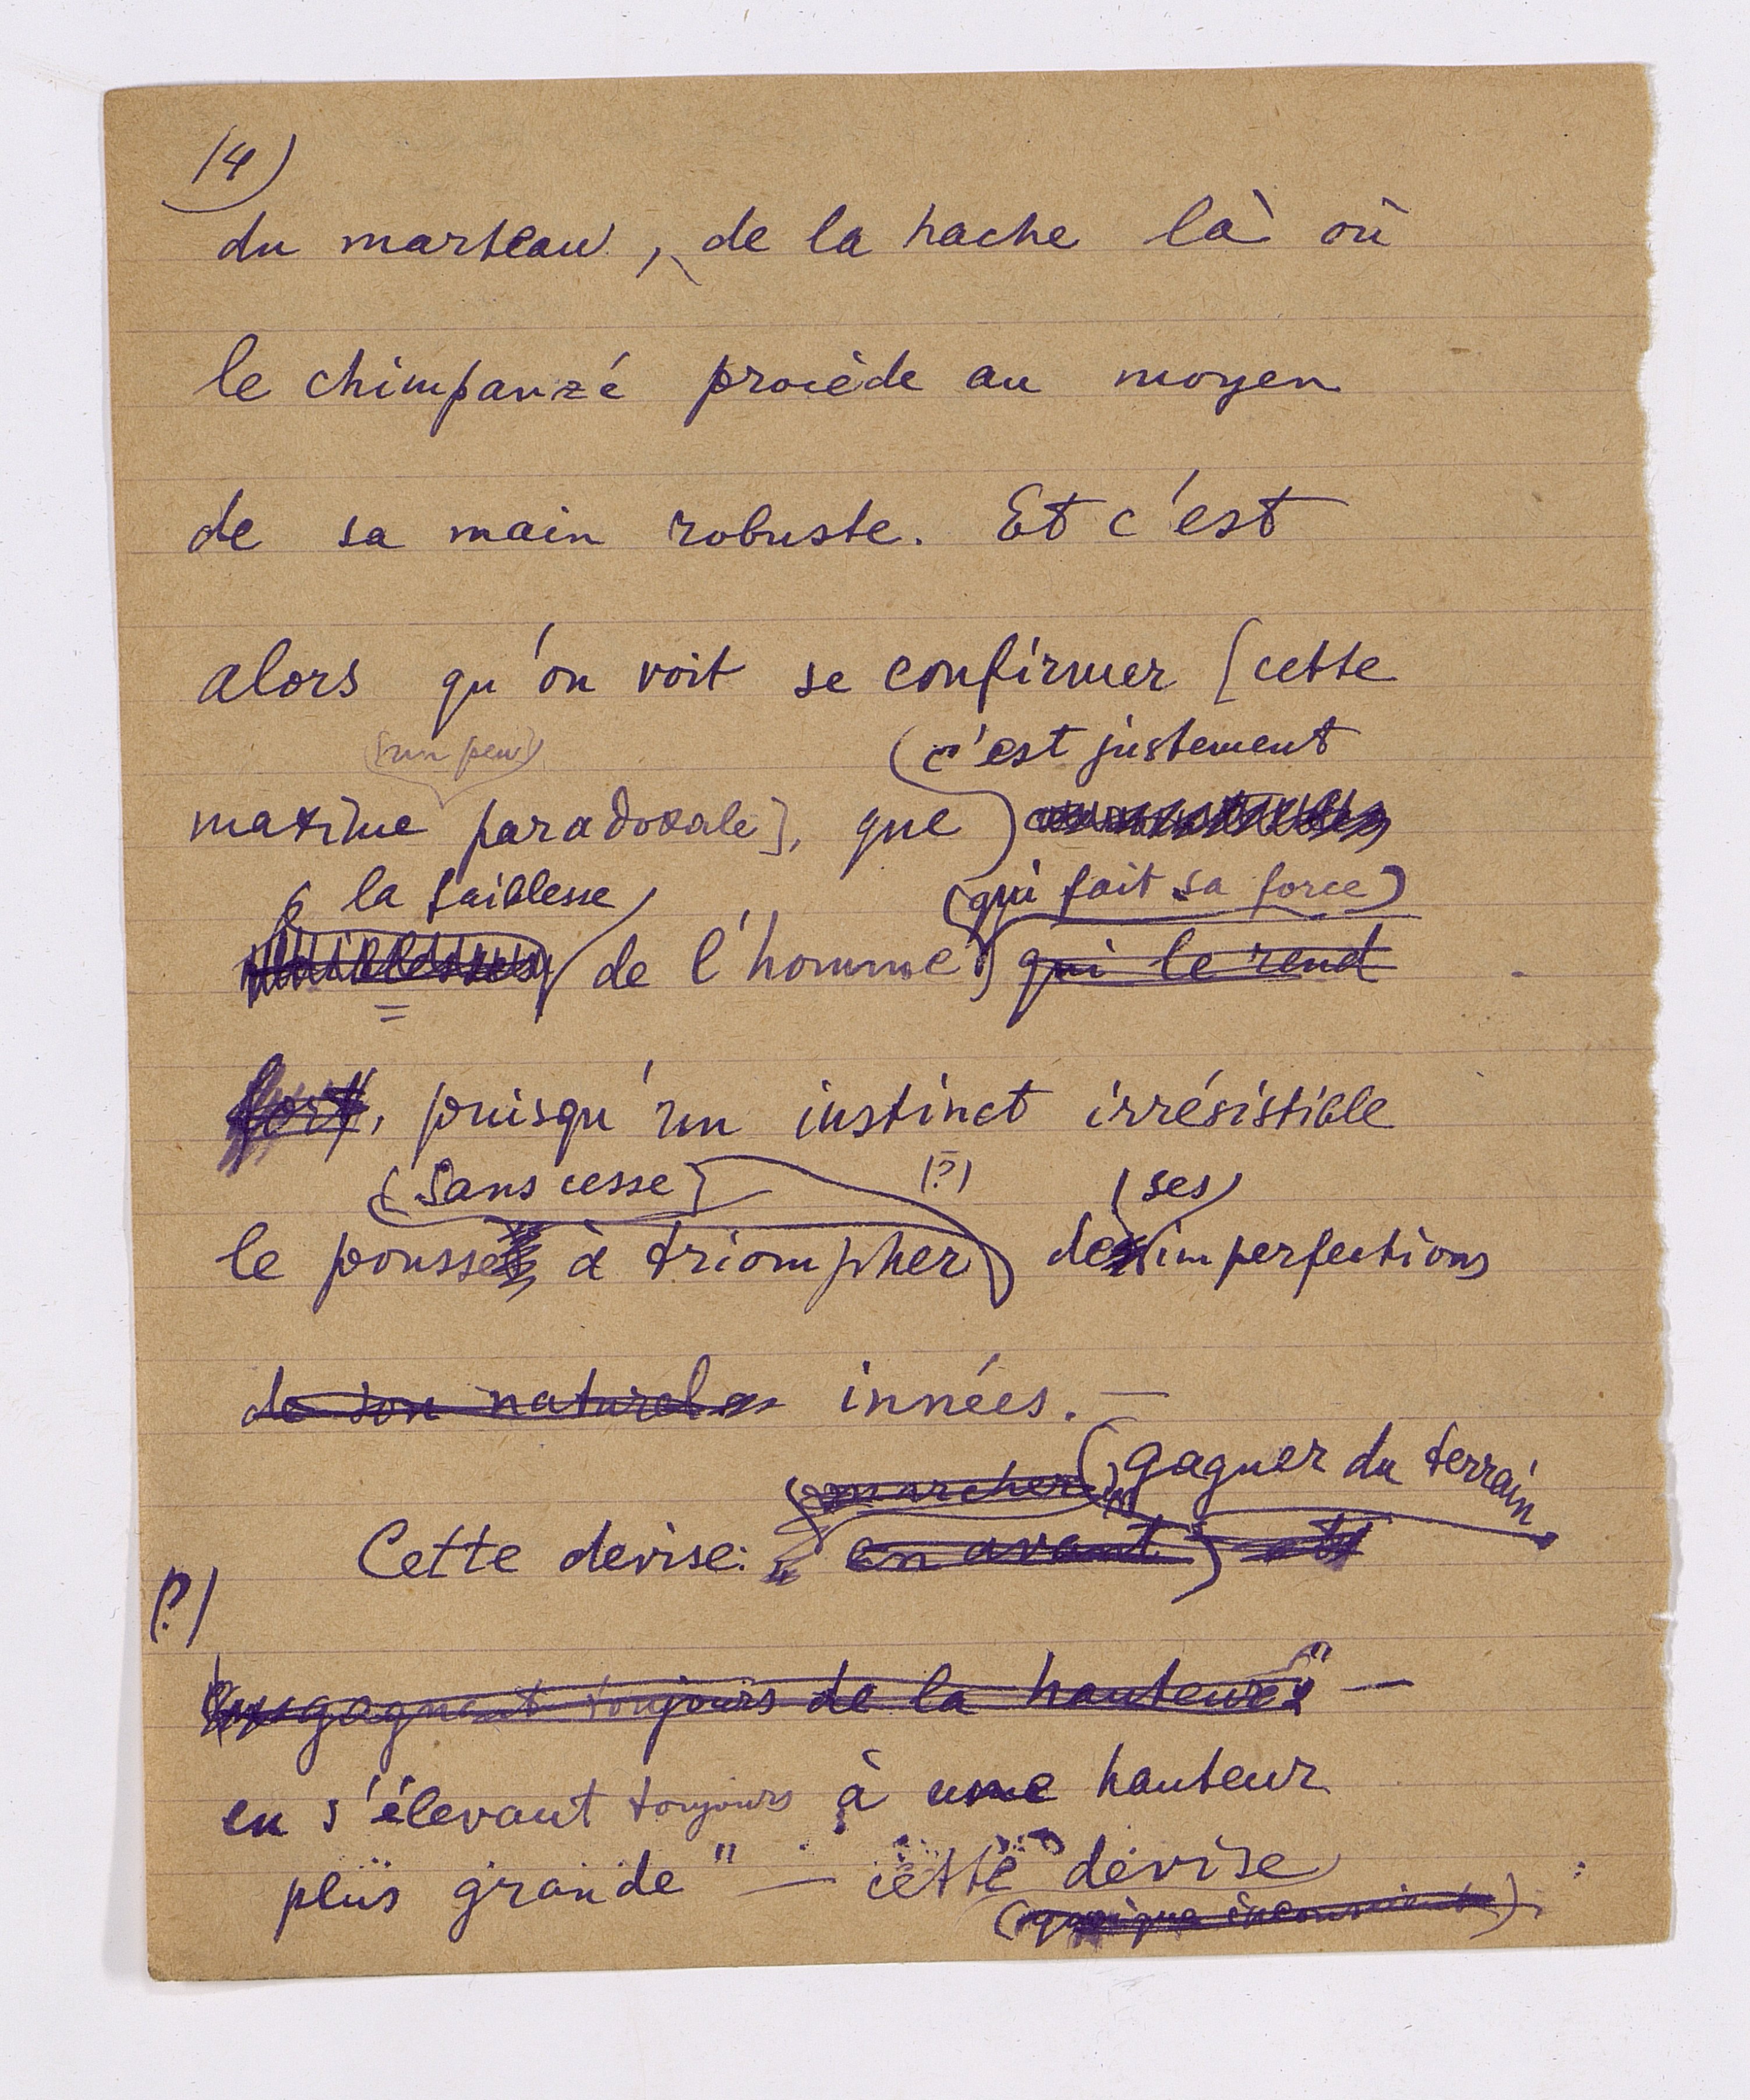 14)
du marteau, de la hache là où
le chimpanzé procède au moyen
de sa main robuste. Et c'est
alors qu'on voit se confirmer [cette
(un peu)
(c'est justement
maxime paradoxale], que
(la faiblesse)
(qui fait sa force)
de l'homme qui le rend
fort, puisqu'un instinct irrésistible
(Sans cesse) (?) (ses)
le pousse à triompher de imperfections
de son naturel innées. —
(marcher) (gagner du terrain
Cette devise: " en avant et
(?)
gagnant toujours de la hauteur" —
en s'élevant toujours à une hauteur
plus grande" — cette devise
(quoique inconsciente)